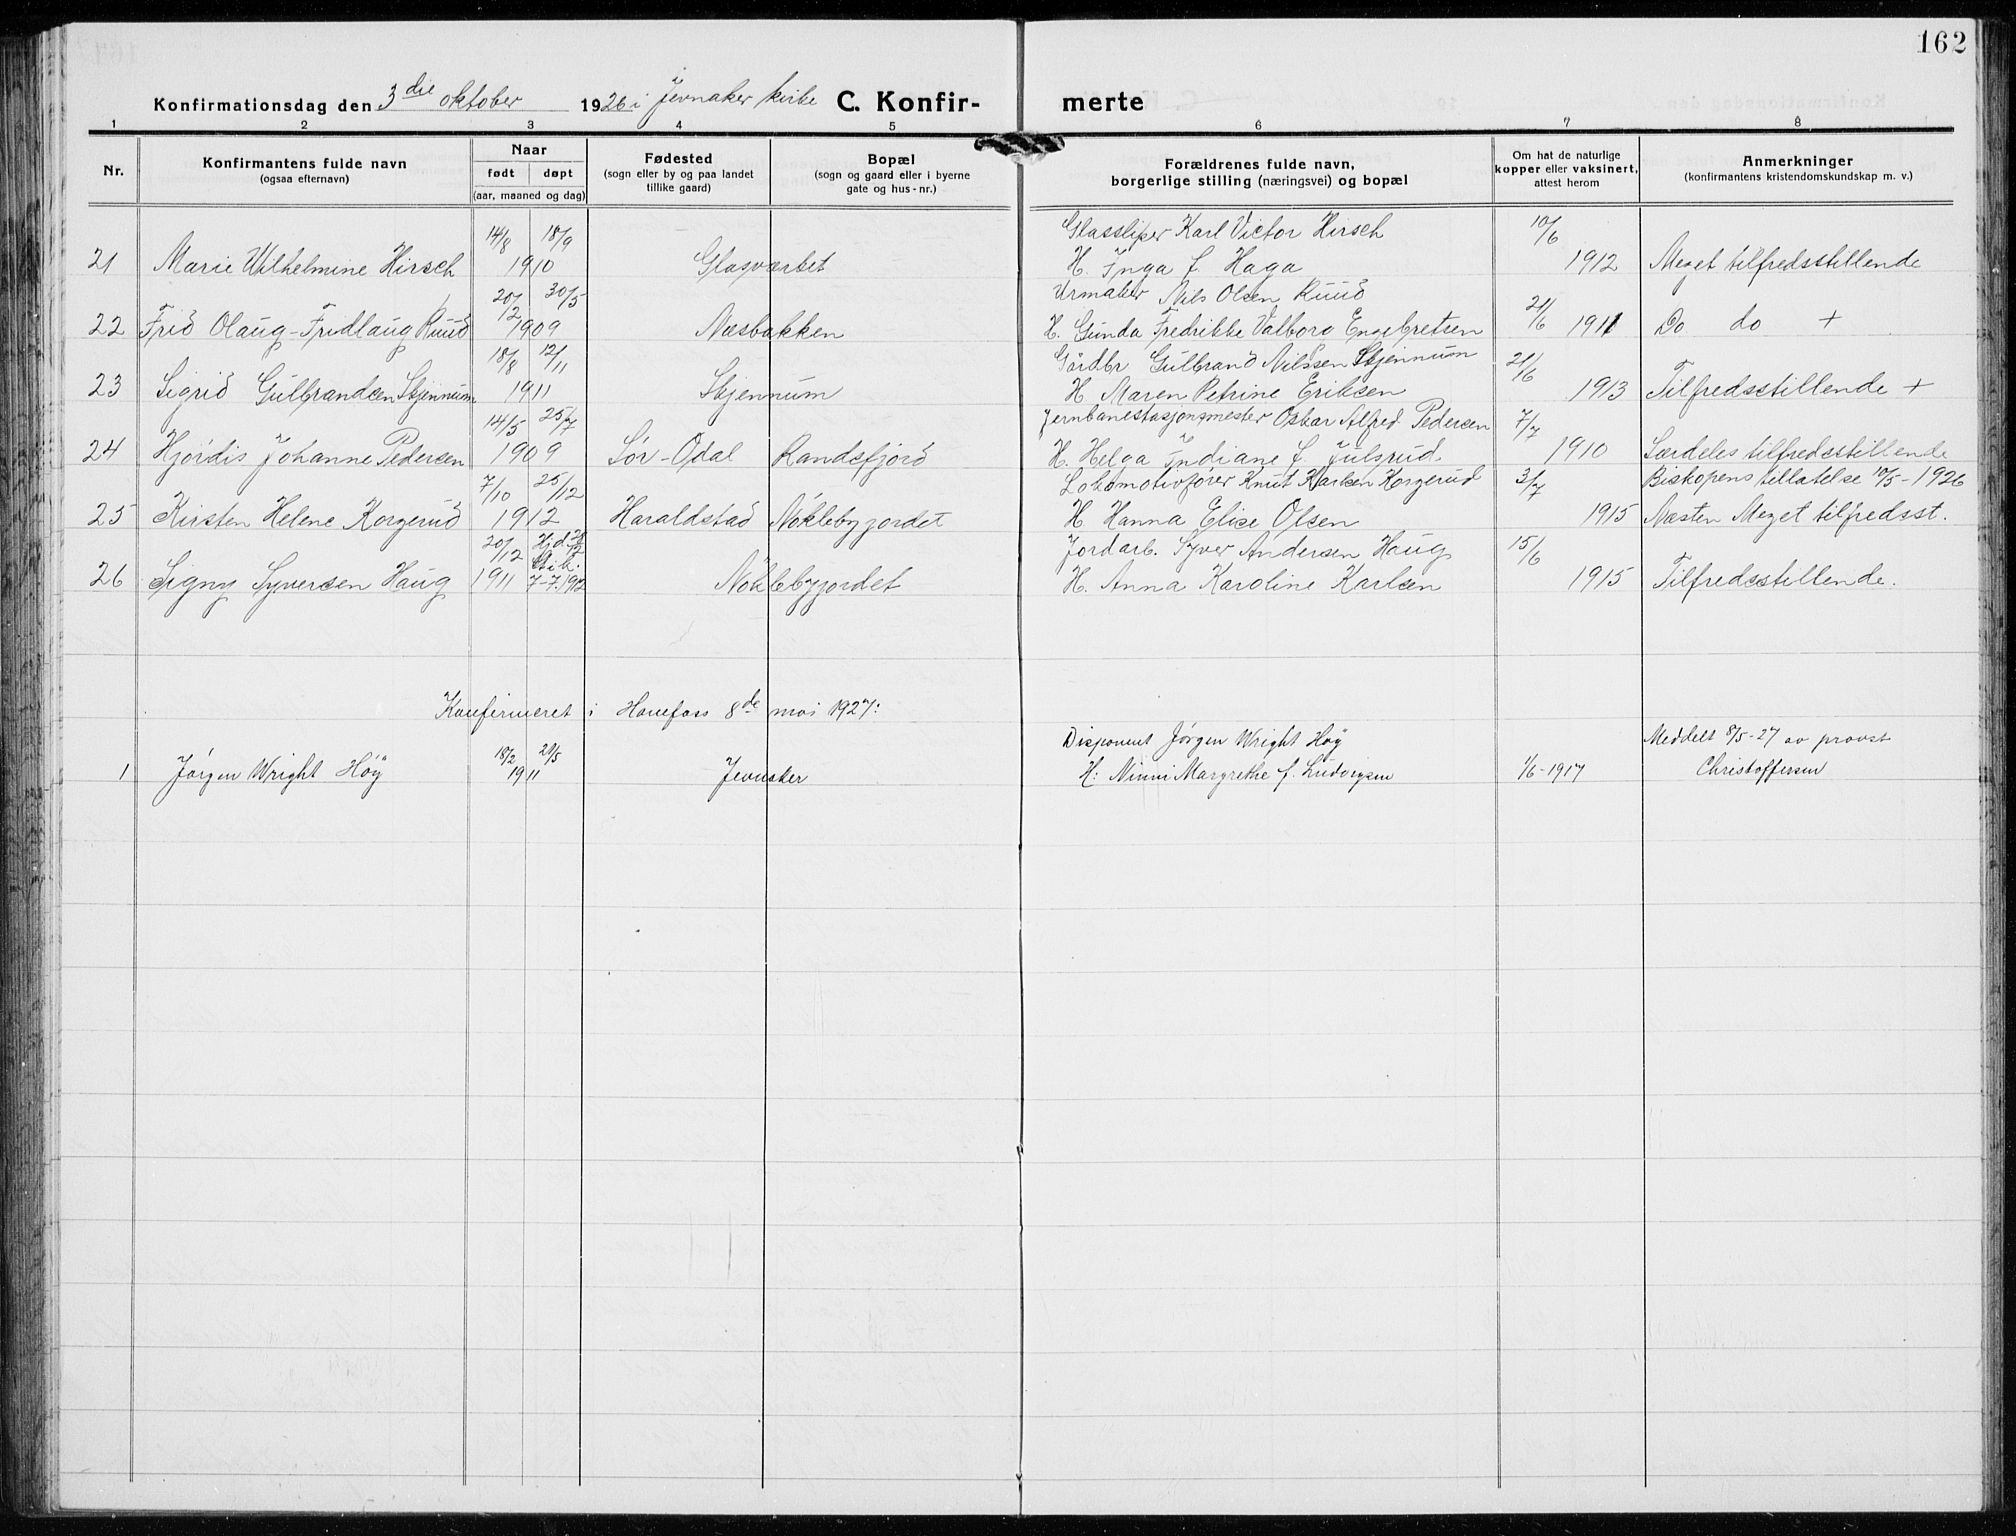 162
Konfirmationsdag den 3die oktober 1926 i Jevnaker kirke C. Konfir- merte
1 2 3 4 5 6 7 8
Nr. Konfirmantens fulde navn (ogsaa efternavn) Naar født døpt (aar, maaned og dag) Fødested (sogn eller by og paa landet tillike gaard) Bopæl (sogn og gaard eller i byerne gate og hus-nr.) Forældrenes fulde navn, borgerlige stilling (næringsvei) og bopæl Om hat de naturlige kopper eller vaksinert, attest herom Anmerkninger (konfirmantens kristendomskundskap m. v.)
14/8 18/9 Glassliper Karl Victor Hirsch 10/6
21 Marie Wilhelmine Hirsch 1910 Glasværket H. Inga f. Haga 1912 Meget tilfredsstillende
20/2 30/5 Urmaker Nils Olsen Ruud 21/6
22 Frid Olaug-Fridlaug Ruud 1909 Næsbakken H. Gunda Fredrikke Valborg Engebretsen 1911 Do do +
18/8 12/11 Gårdbr Gulbrand Nilssen Skjennum 21/6
23 Sigrid Gulbrandsen Skjennum 1911 Skjennum H Maren Petrine Eriksen 1913 Tilfredsstillende +
14/5 25/7 Jernbanestasjonsmester Oskar Alfred Pedersen 7/7
24 Hjördis Johanne Pedersen 1909 Sör-Odal Randsfjord H. Helga Indiane f. Julsrud 1910 Særdeles tilfredsstillende
7/10 25/12 Lokomotivfører Knut Karlsen Korgerud 3/7 Biskopens tillatelse 10/5-1926
25 Kirsten Helene Korgerud 1912 Haraldstad Nöklebyjordet H Hanna Elise Olsen 1915 Næsten Meget tilfredsst.
20/12 Hjd. Jordarb. Syver Andersen Haug 15/6
26 Signy Syversen Haug 1911 7-7.1912 Nöklebyjordet H. Anna Karoline Karlsen 1915 Tilfredsstillende.
Konfirmeret i Hønefoss 8de mai 1927:
18/2 21/5 Disponent Jörgen Wright Höÿ Meddelt 8/5-27 av provst
1 Jörgen Wright Höÿ 1911 Jevnaker H: Ninni Margrethe f. Ludvigsen 1/6-1917 Christoffersen